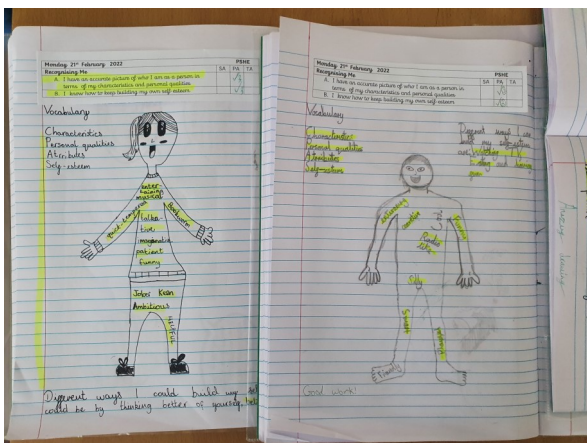 Monday 21st February 2022 PSHE
Recognising Me SA PA TA
A. I have an accurate picture of who I am as a person in
terms of my characteristics and personal qualities
B. I know how to keep building my own self-esteem
Vocabulary
Characteristics
Personal qualities
Attributes
Self-esteem
enter-
taining
musical
good-tempered
Bookworm
talka-
tive
imaginative
patient
funny
Joker Keen
Ambitious
HELPFUL
Different ways I could build my
could be by thinking better of yourself,
Monday 21st February 2022 PSHE
Recognising Me SA PA TA
A. I have an accurate picture of who I am as a person in
terms of my characteristics and personal qualities
B. I know how to keep building my own self-esteem
Vocabulary
Characteristics
Personal qualities
Attributes
Self-esteem
Different ways I can
build my self-esteem
are: Watching T.V,
and having
creative
Cool
Funny
Silly
Smart
Friendly
Good work!
Amazing drawing